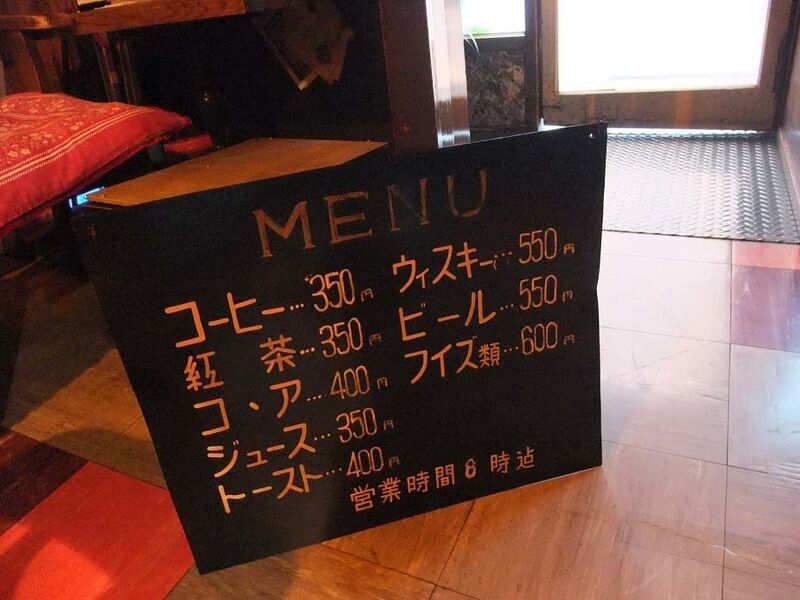 MENU
コーヒー…350円
紅 茶…350円
コヽア…400円
ジュース…350円
トースト…400円
ウィスキー…550円
ビール…550円
フイズ類…600円
営業時間8時迠